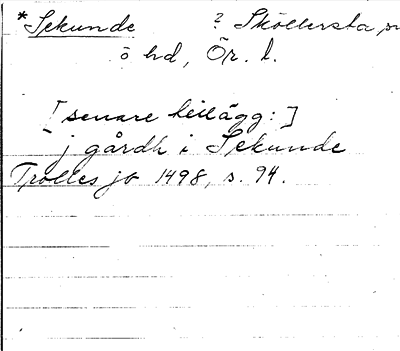 *Sekunde ? Sköllersta, sn
ö hd, Ör. l.
[senare tillägg:]
j gårdh i Sekunde
Trolles jb 1498, s. 94.